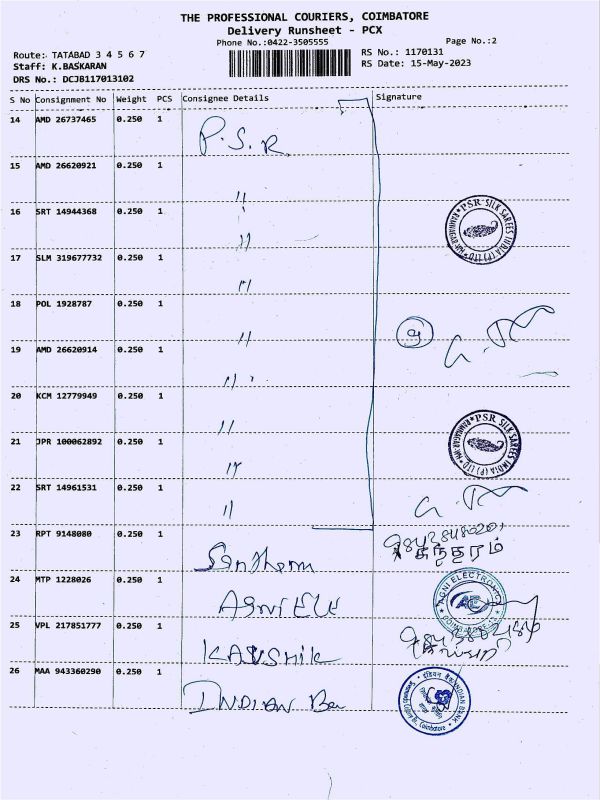 THE PROFESSIONAL COURIERS, COIMBATORE
Delivery Runsheet - PCX
Phone No.:0422-3505555
Page No.:2
Route: TATABAD 3 4 5 6 7
Staff: K.BASKARAN
DRS No.: DCJB117013102
RS No.: 1170131
RS Date: 15-May-2023
S No Consignment No Weight PCS Consignee Details Signature
14 AMD 26737465 0.250 1 P.S.R.
15 AMD 26620921 0.250 1 "
16 SRT 14944368 0.250 1 "
PSR SILK SAREES INDIA (P) LTD
17 SLM 319677732 0.250 1 "
18 POL 1928787 0.250 1 "
19 AMD 26620914 0.250 1 "
20 KCM 12779949 0.250 1 "
21 JPR 100062892 0.250 1 "
PSR SILK SAREES INDIA (P) LTD
22 SRT 14961531 0.250 1 "
23 RPT 9148080 0.250 1
சுந்தரம்
24 MTP 1228026 0.250 1 AGNI ELE
AGNI ELECTRONIC
25 VPL 217851777 0.250 1 KAUSHIK
26 MAA 943360290 0.250 1 INDIAN Ban
इंडियन बैंक INDIAN BANK
Coimbatore